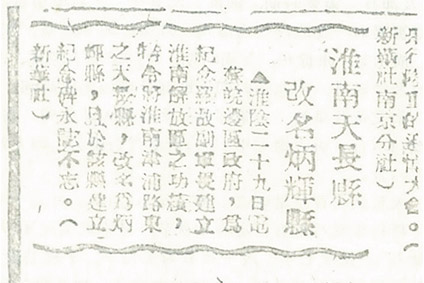 大會。（
新華社南京分社）
淮南天長縣
改名炳輝縣
▲淮陰二十九日電
蘇皖邊區政府，爲
紀念羅故副軍長建立
淮南解放區之功績，
特令將淮南津浦路東
之天長縣，改名爲炳
輝縣，且於該縣建立
紀念碑永誌不忘。（
新華社）